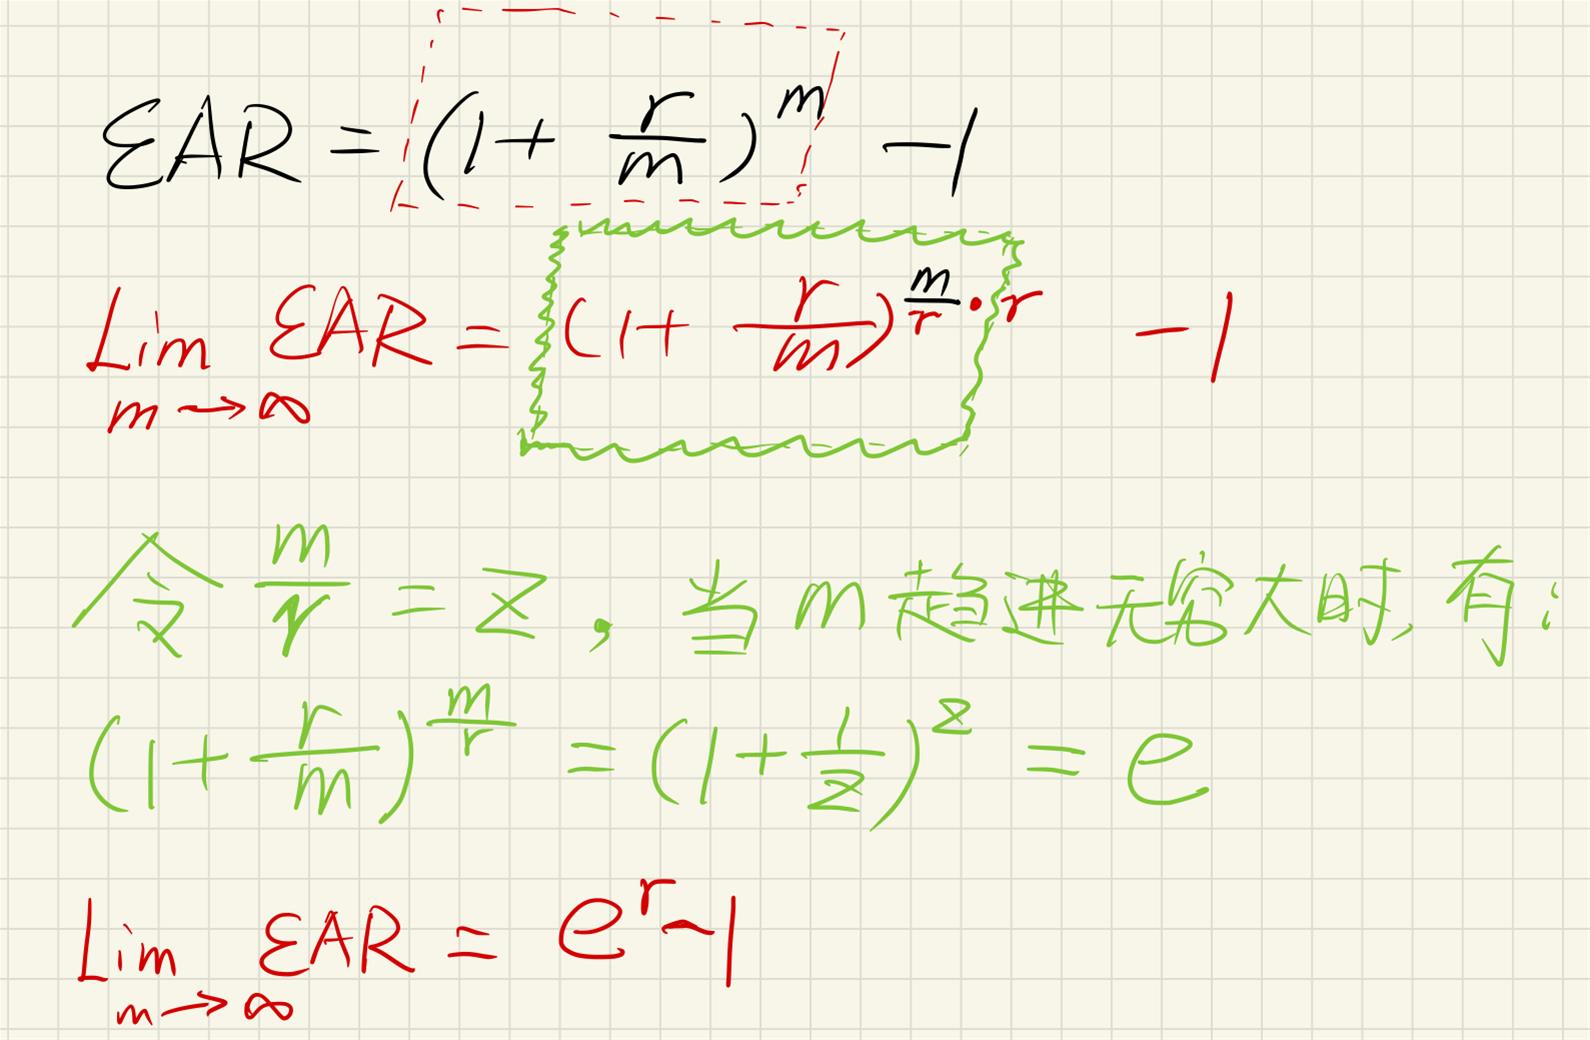 EAR = (1 + r/m)^m - 1
Lim m→∞ EAR = (1 + r/m)^(m/r · r) - 1
令 m/r = z, 当 m 趋进无穷大时, 有:
(1 + r/m)^(m/r) = (1 + 1/z)^z = e
Lim m→∞ EAR = e^r - 1